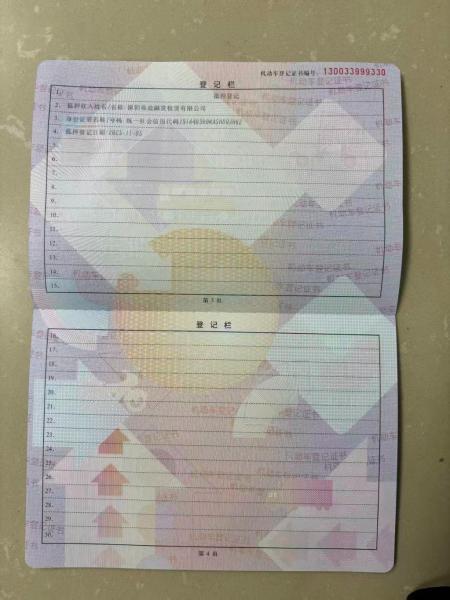 机动车登记证书编号: 130033999330
登 记 栏
1. 抵押登记
2. 抵押权人姓名/名称: 融资租赁有限公司
3. 身份证明名称/号码: 统一社会信用代码/
4. 抵押登记日期:
5.
6.
7.
8.
9.
10.
11.
12.
13.
14.
15.
第 3 页
登 记 栏
16.
17.
18.
19.
20.
21.
22.
23.
24.
25.
26.
27.
28.
29.
30.
第 4 页